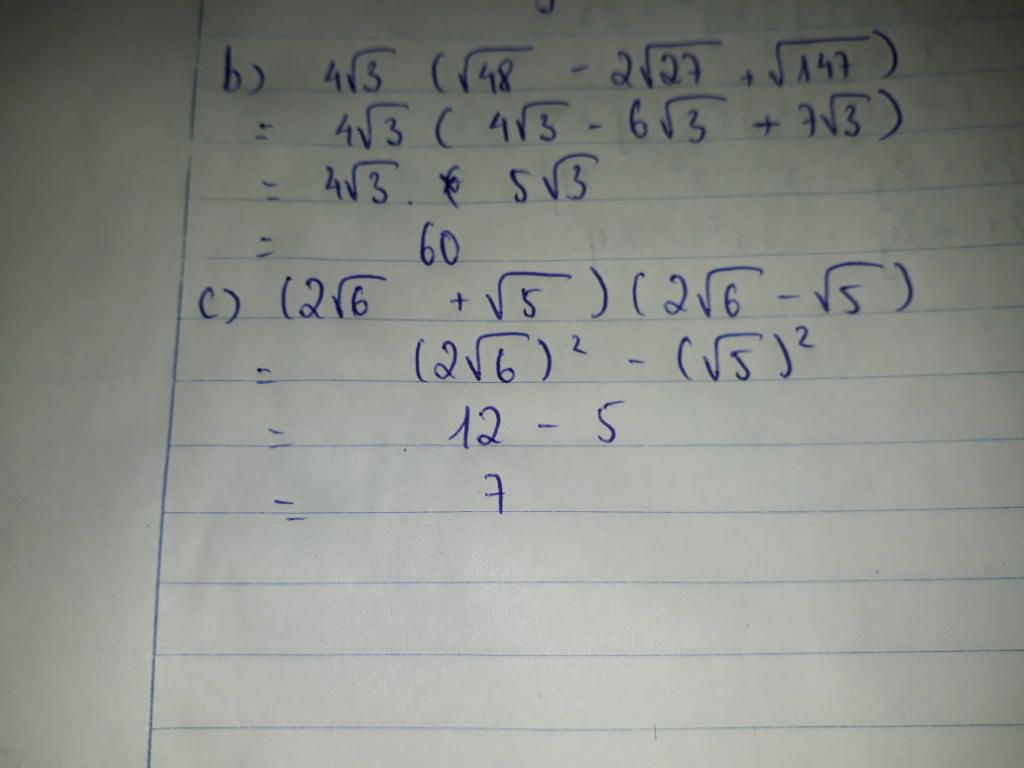 b) 4√3 (√48 - 2√27 + √147)
= 4√3 ( 4√3 - 6√3 + 7√3)
= 4√3 . 5√3
= 60
c) (2√6 + √5) (2√6 - √5)
= (2√6)² - (√5)²
= 12 - 5
= 7